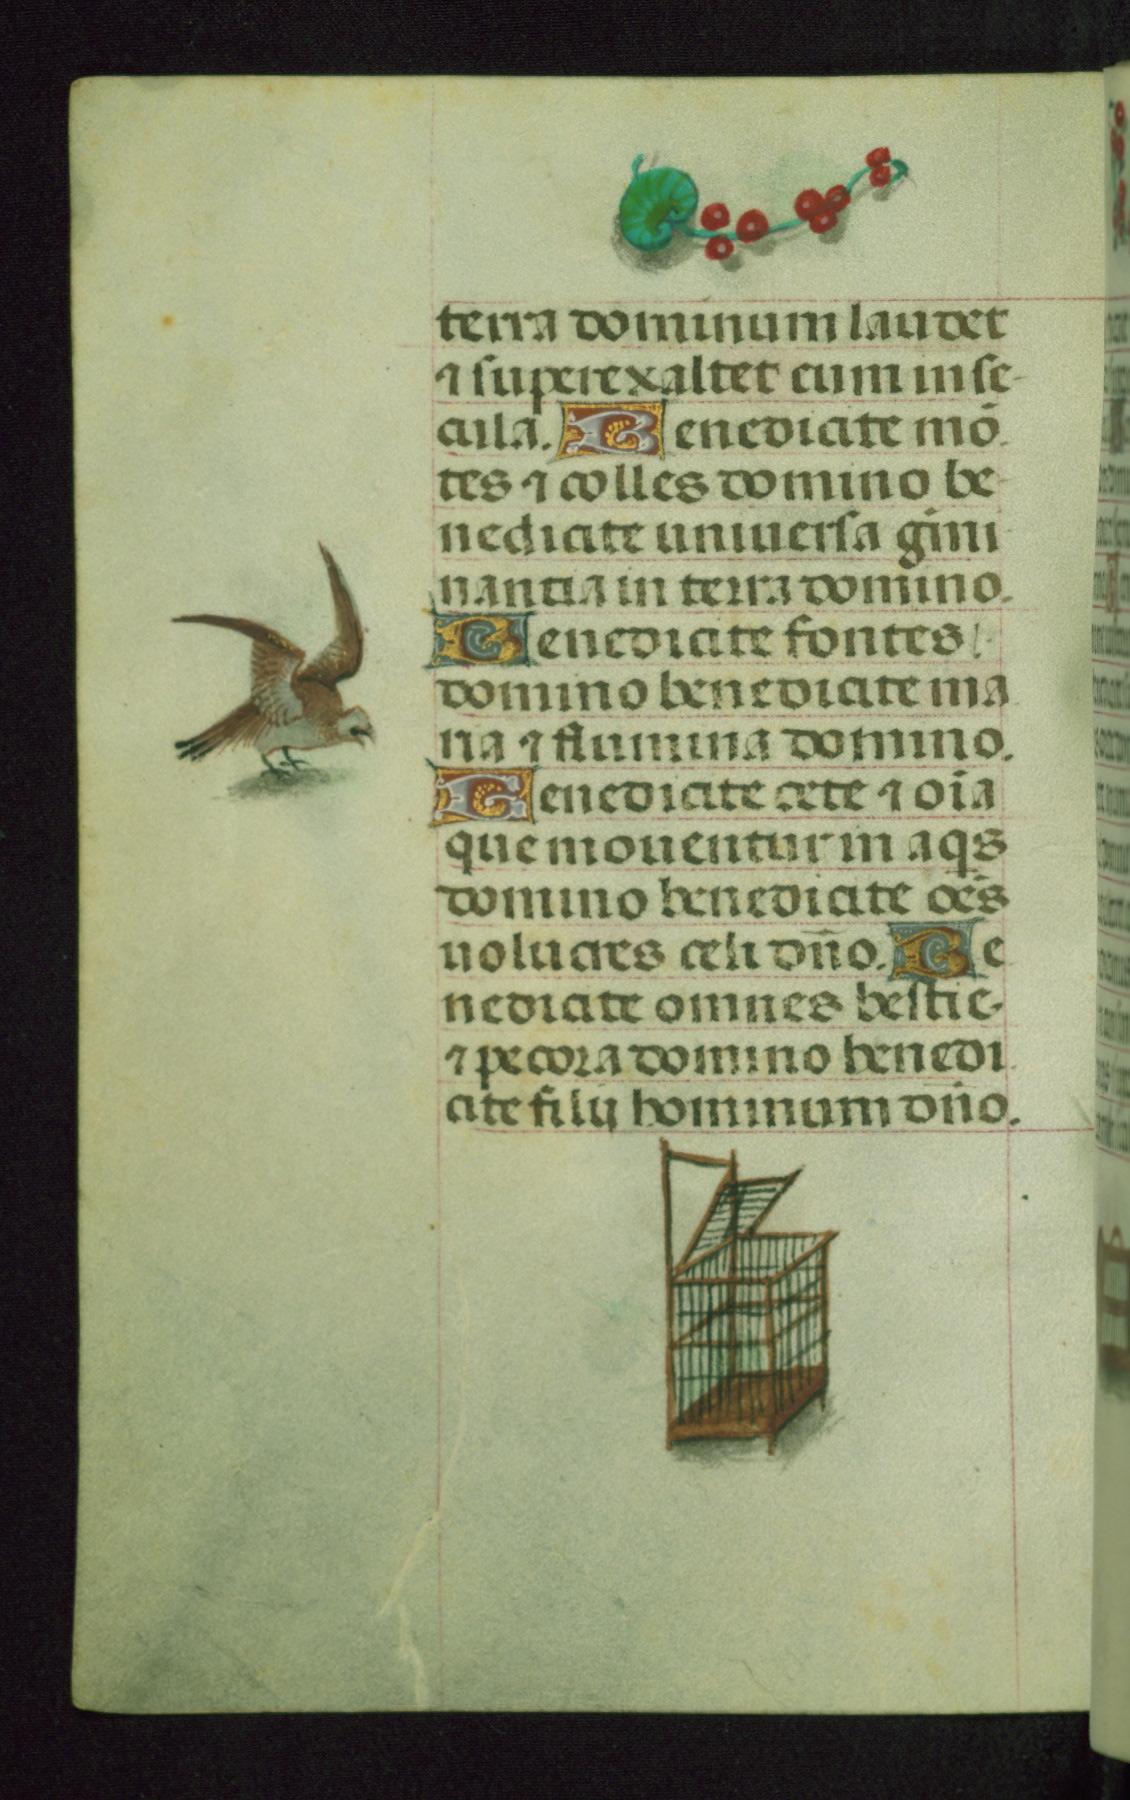 terra dominum laudet
⁊ superexaltet eum in se-
cula. Benedicite mō
tes ⁊ colles domino be-
nedicite universa g̅mi
nantia in terra domino.
Benedicite fontes
domino benedicite ma
ria ⁊ flumina domino.
Benedicite cete ⁊ oīa
que moventur in aq̄s
domino benedicite oēs
volucres celi dn̄o. Be
nedicite omnes bestie
⁊ pecora domino benedi
cite filij hominum dn̄o.